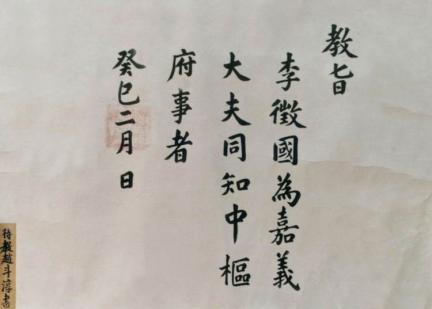 教旨
李徵國為嘉義
大夫同知中樞
府事者
癸巳二月 日
待教趙斗淳書